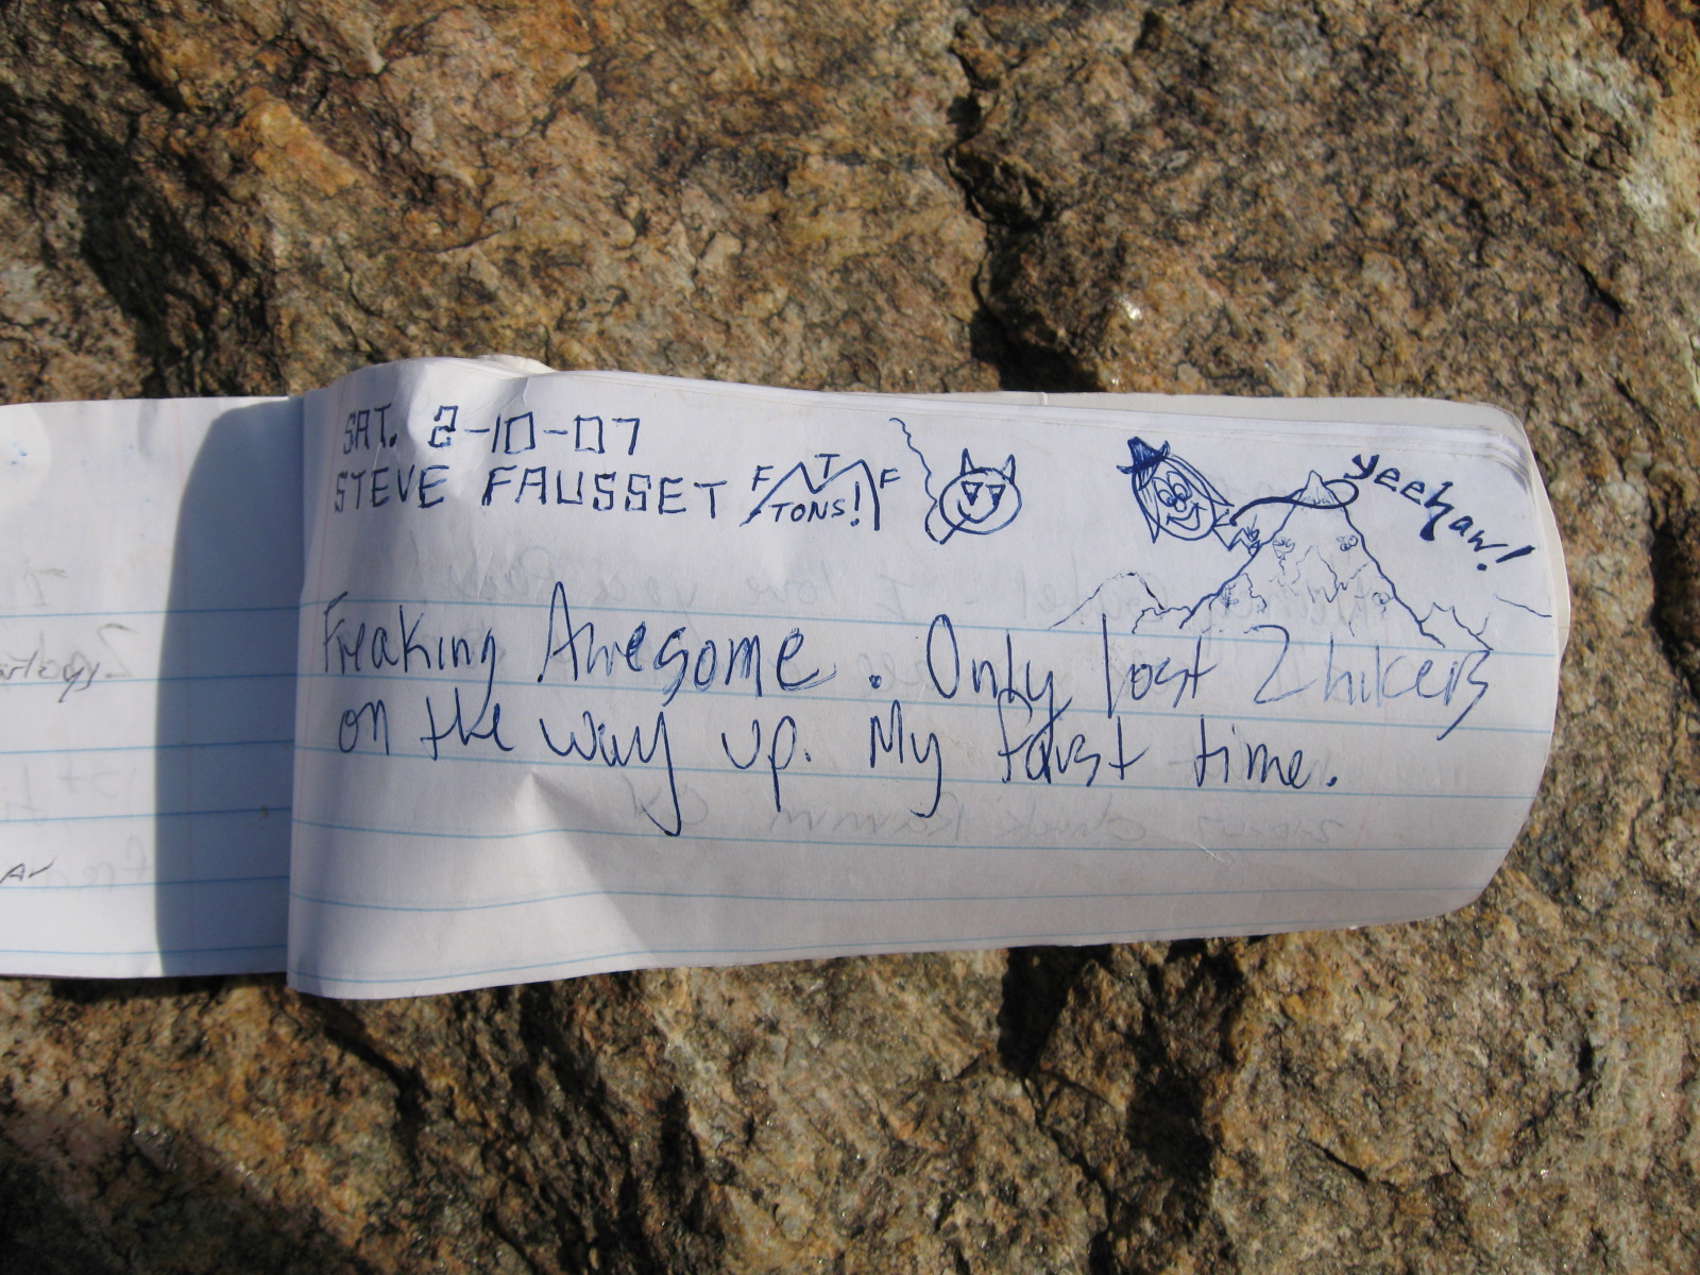 SAT. 2-10-07
STEVE FAUSSET F T F
TONS!
yeehaw!
Freaking Awesome. Only lost 2 hikers
on the way up. My farst time.
Ar